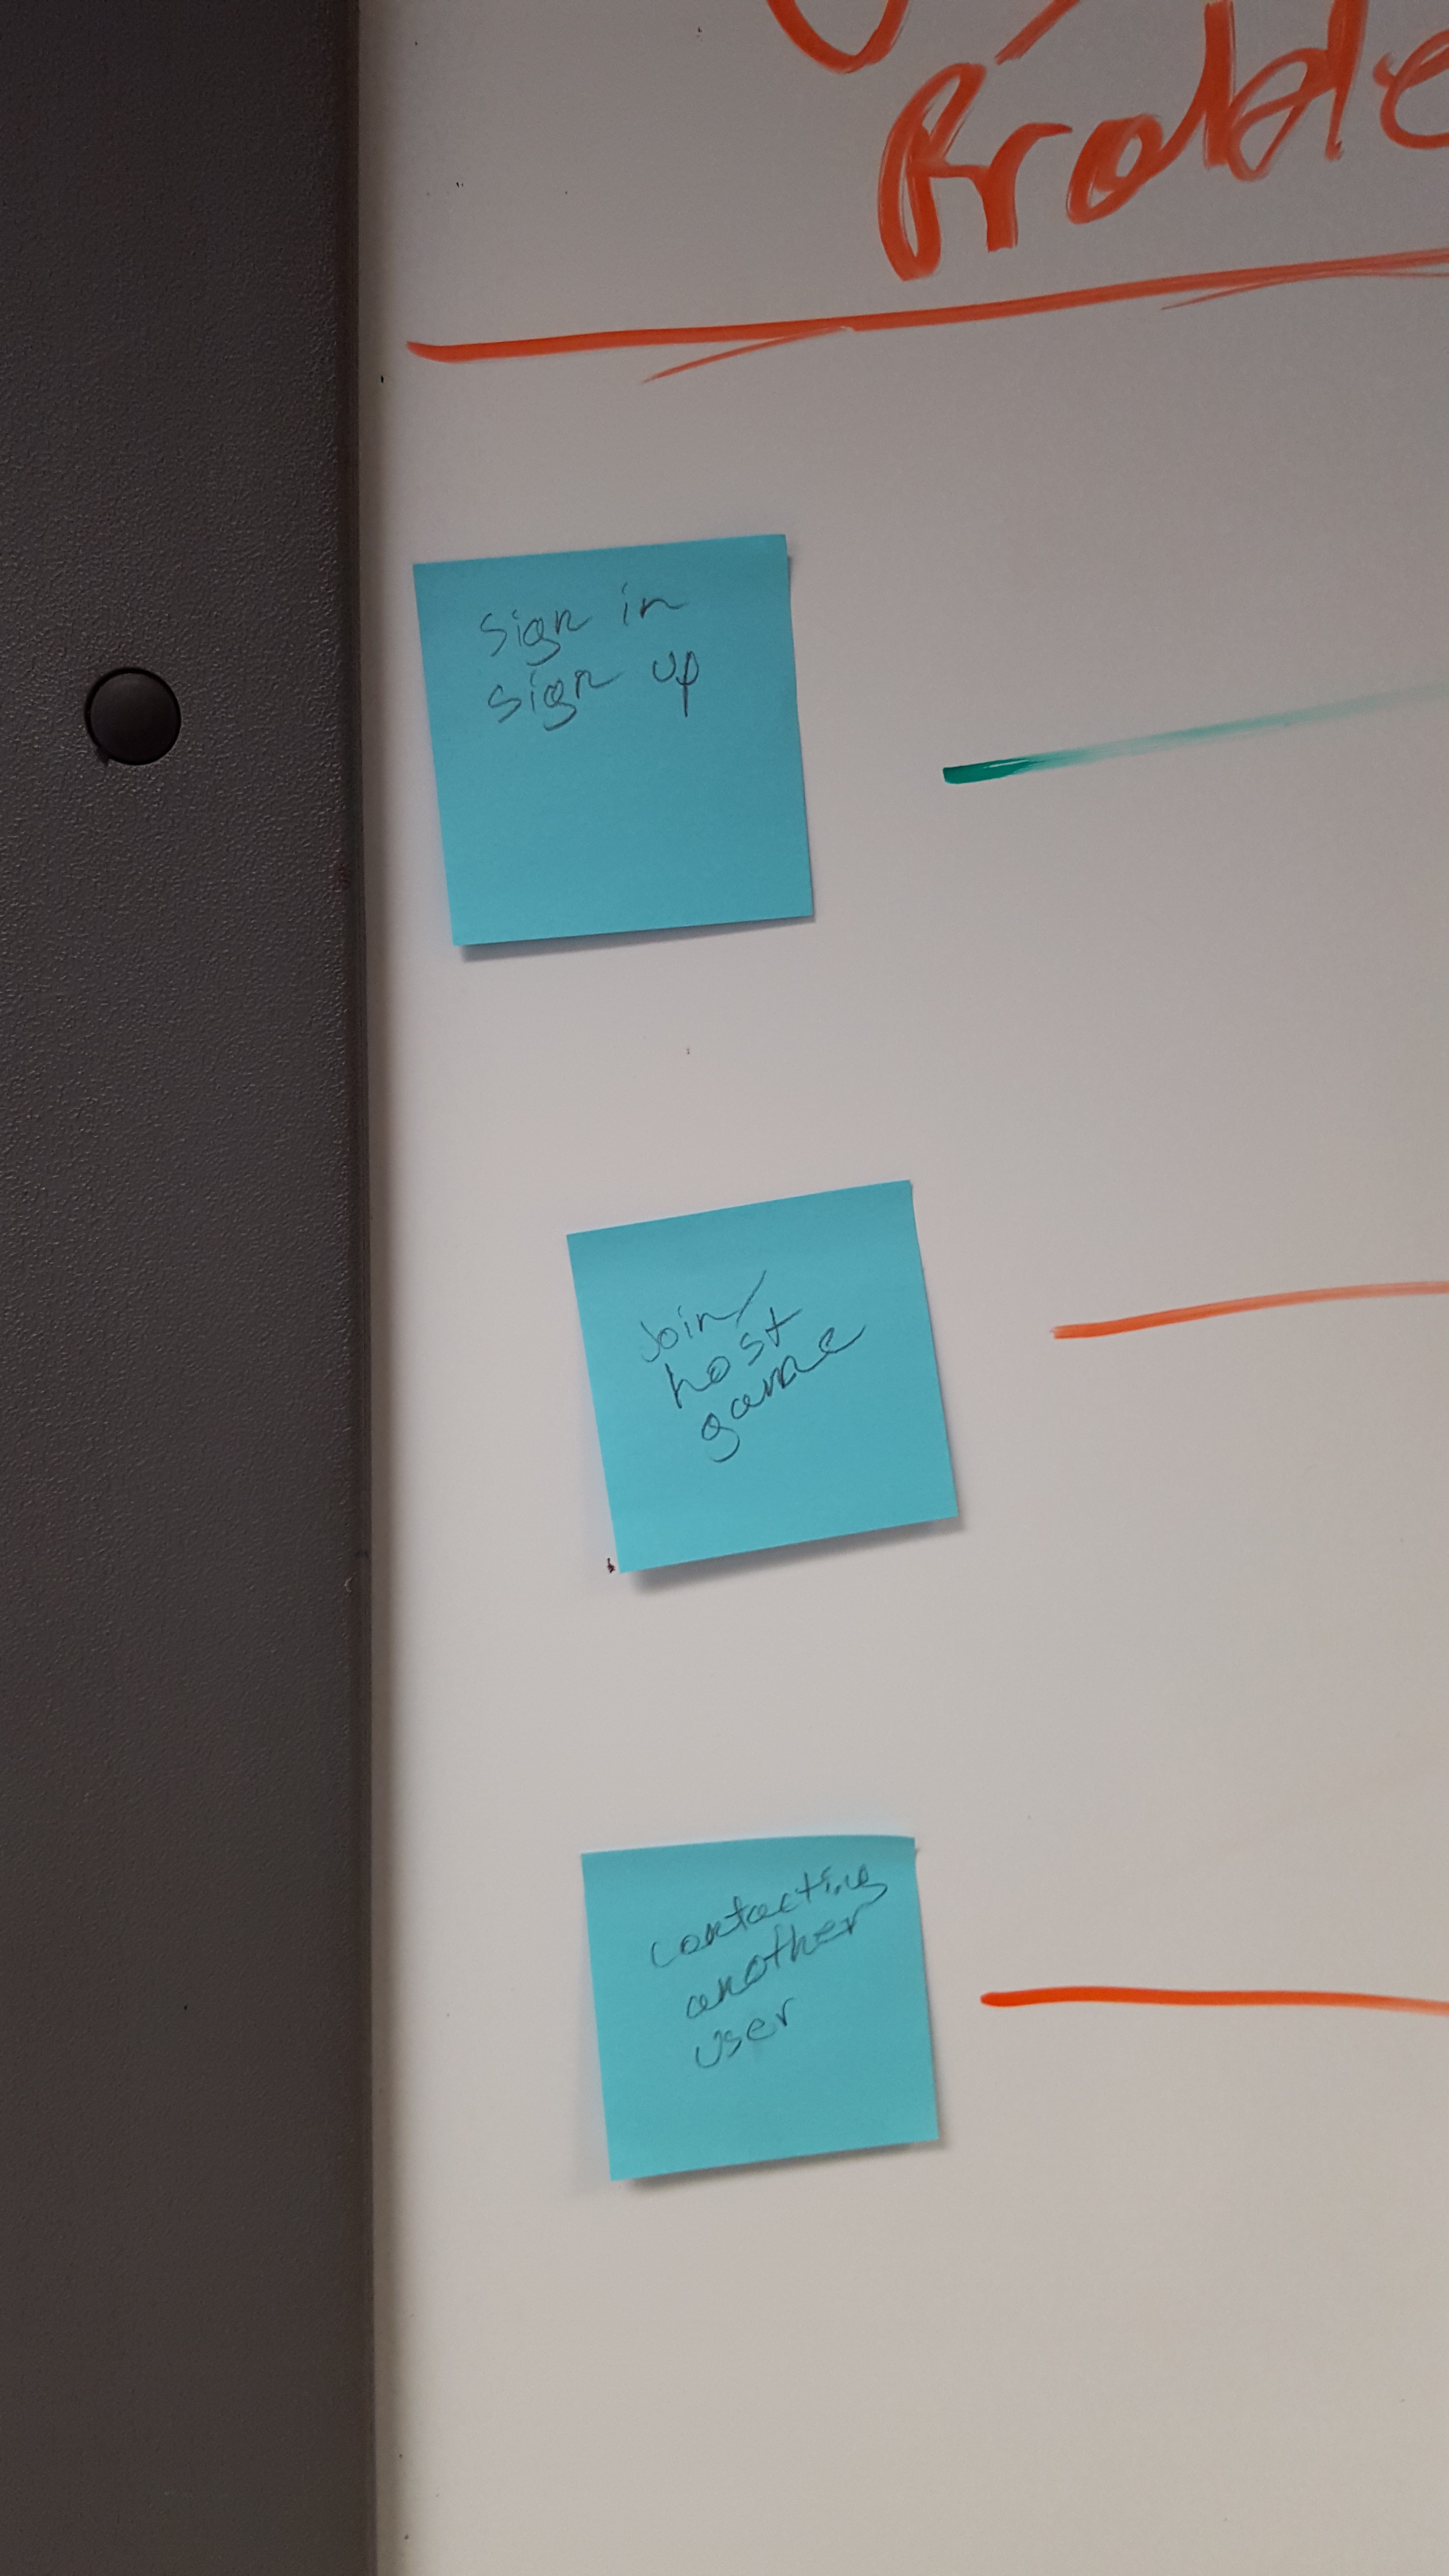 Proble
Sign in
sign up
Join/
host
game
contacting
another
user